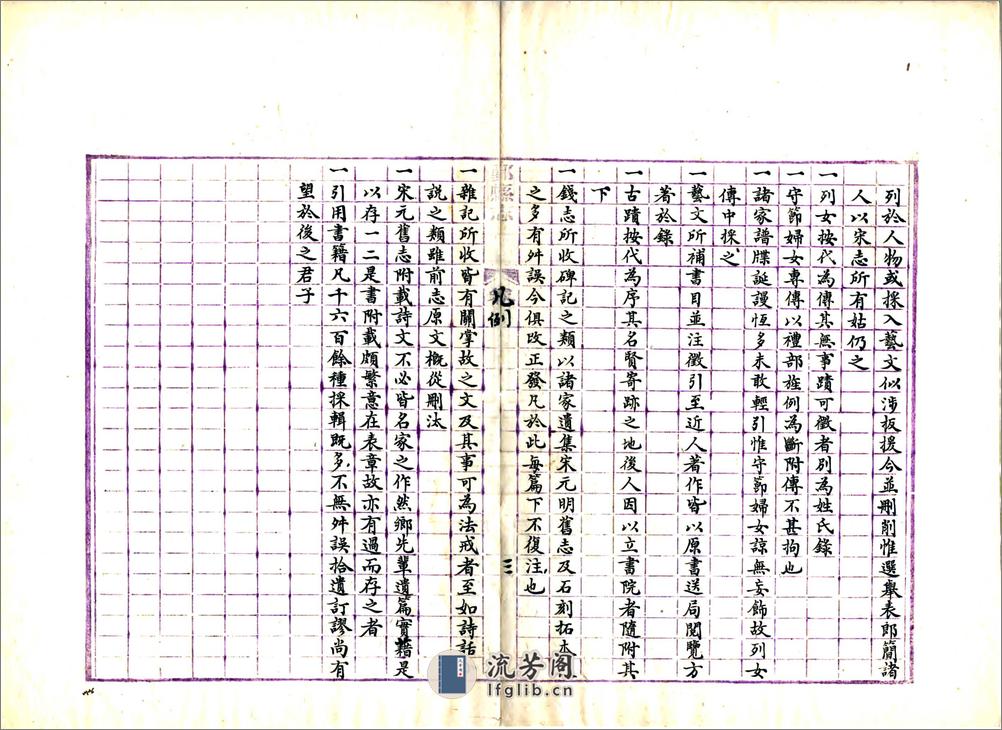 列於人物或採入藝文似涉扳援今並刪削惟選舉表郎簡諸
人以宋志所有姑仍之
一列女按代為傳其無事蹟可徵者別為姓氏錄
一守節婦女專傳以禮部旌例為斷附傳不甚拘也
一諸家譜牒誕謾恆多未敢輕引惟守節婦女諒無妄飾故列女
傳中採之
一藝文所補書目並注徵引至近人著作皆以原書送局閱覽方
著於錄
一古蹟按代為序其名賢寄跡之地後人因以立書院者隨附其
下
一錢志所收碑記之類以諸家遺集宋元明舊志及石刻拓本
之多有舛誤今俱改正發凡於此每篇下不復注也
鄞縣志
凡例
三
一雜記所收皆有關掌故之文及其事可為法戒者至如詩話
說之類雖前志原文概從刪汰
一宋元舊志附載詩文不必皆名家之作然鄉先輩遺篇實藉是
以存一二是書附載頗繁意在表章故亦有過而存之者
一引用書籍凡千六百餘種採輯既多不無舛誤拾遺訂謬尚有
望於後之君子
流芳阁
lfglib.cn